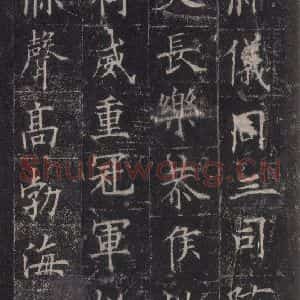 儀同三司
長樂恭侯
威重礼軍
聲髙勃海
Shufawang.CN